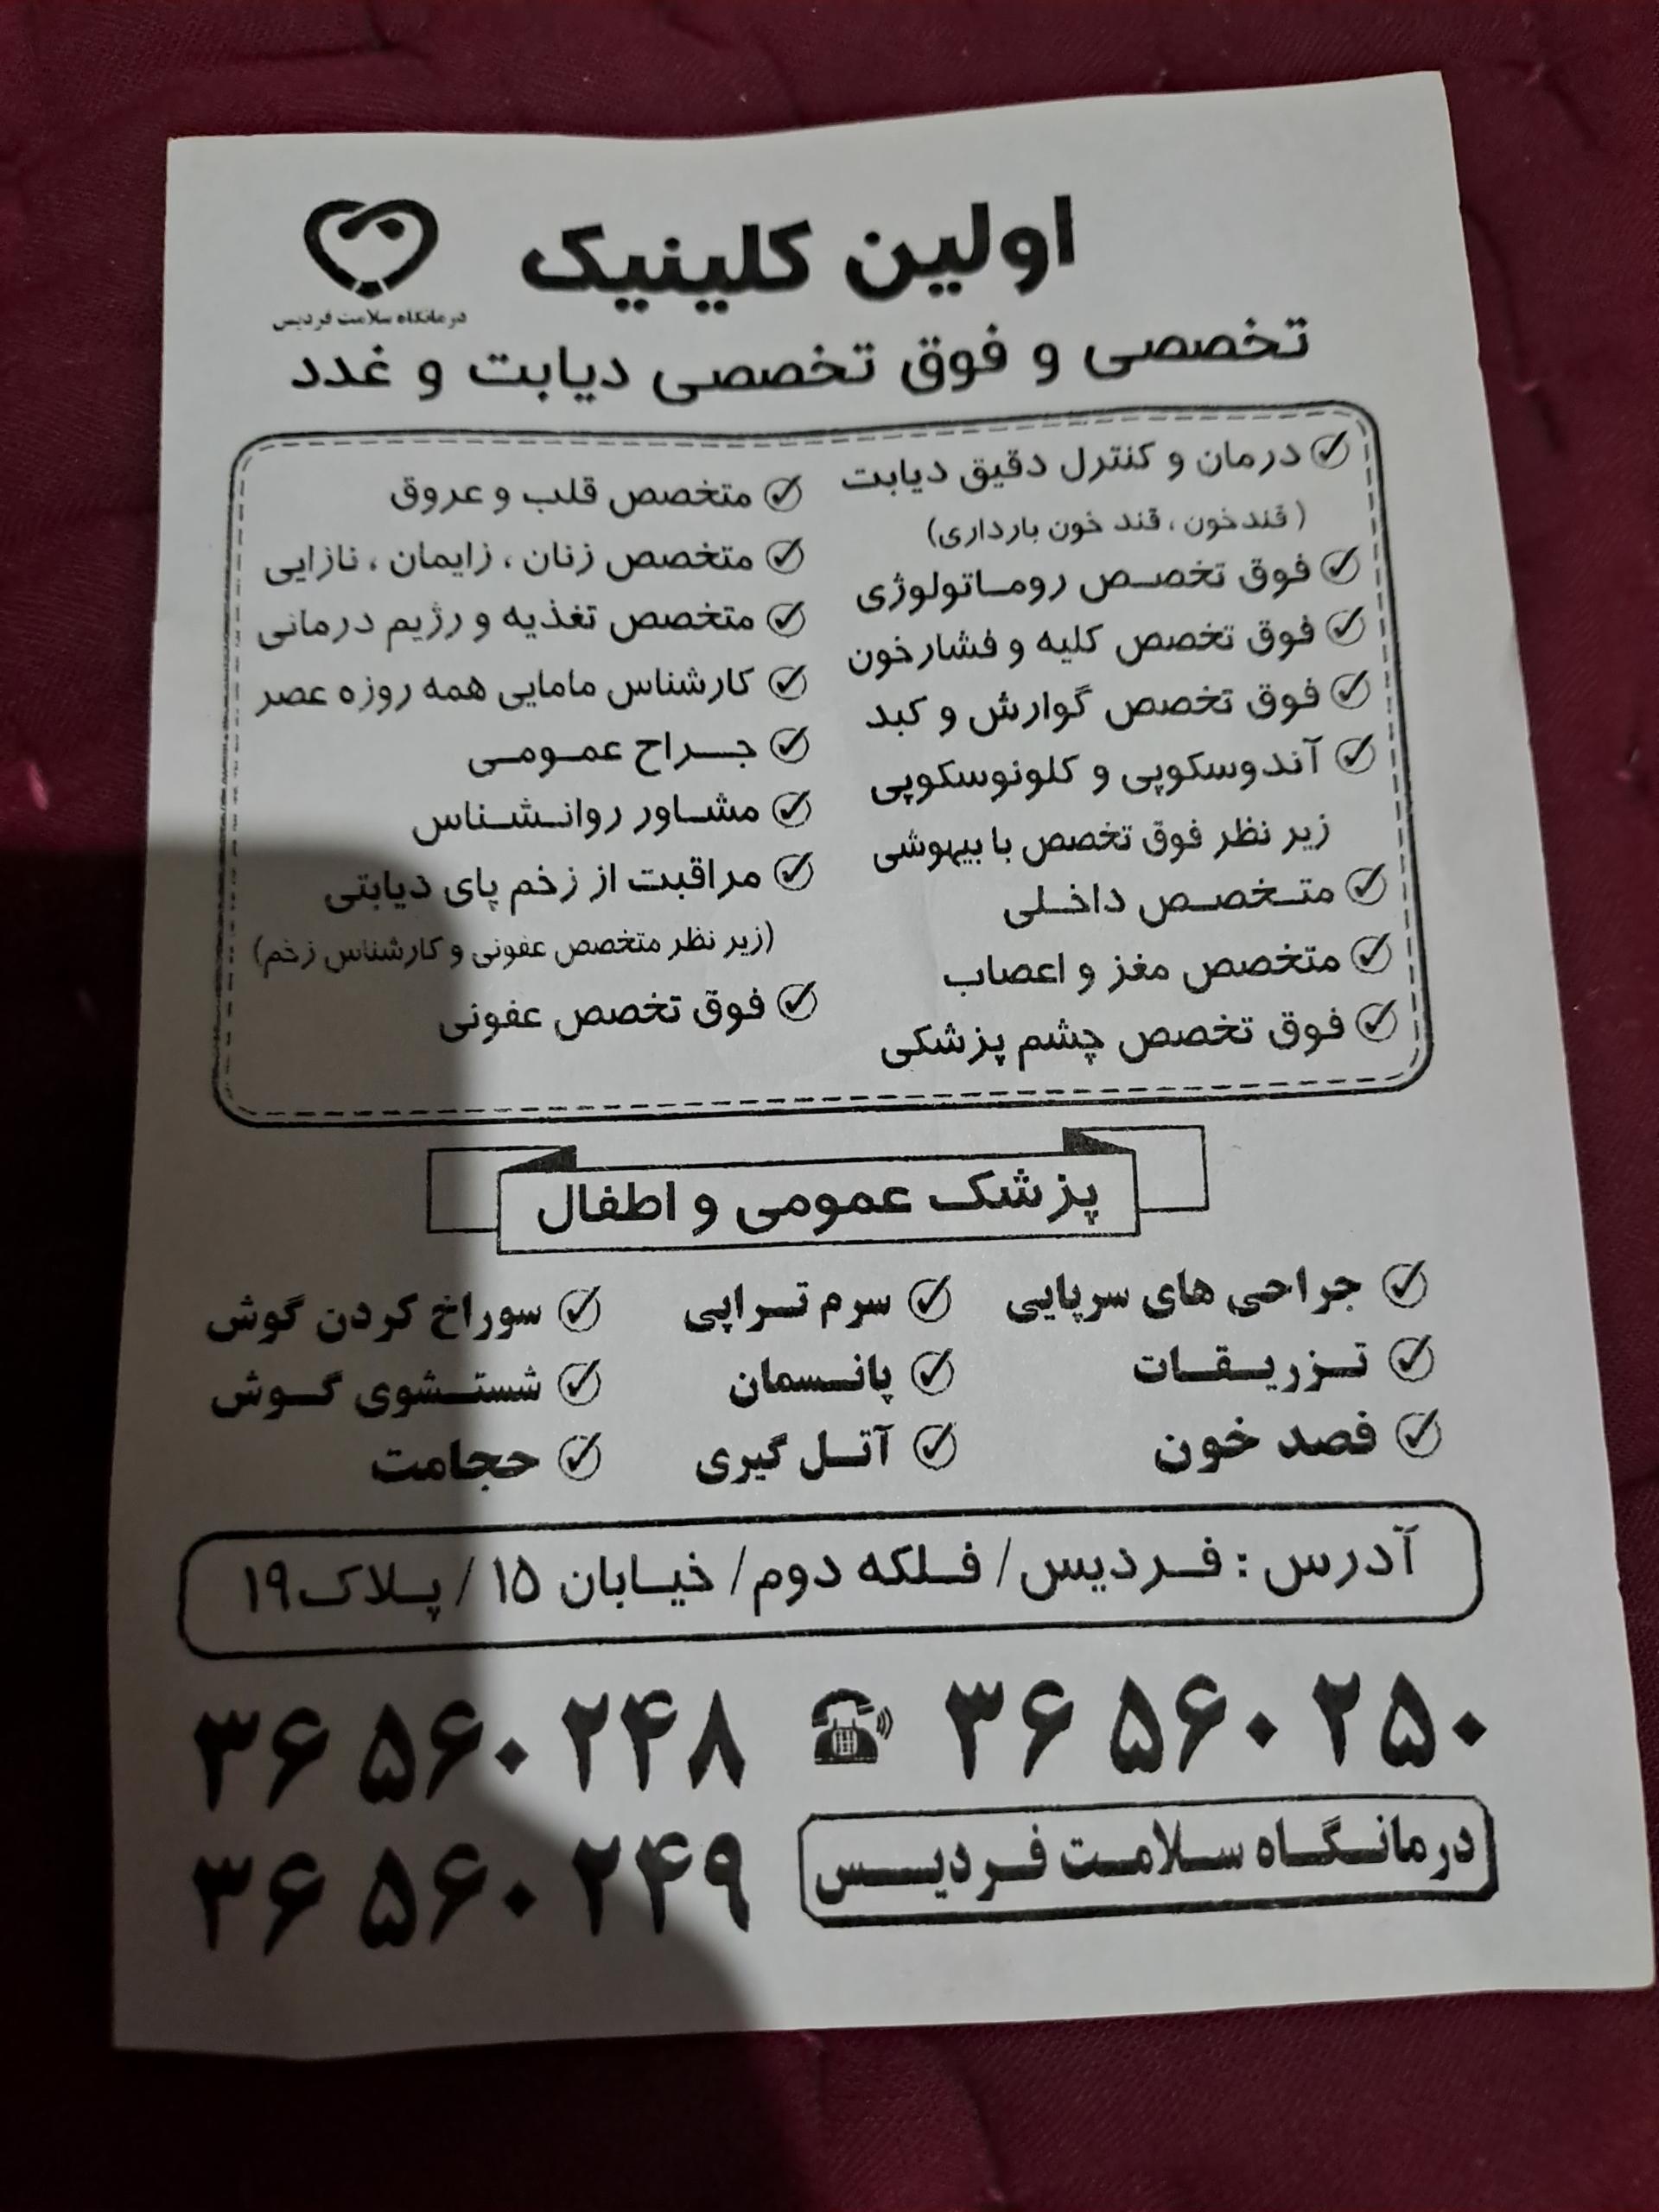 اولین کلینیک
درمانگاه سلامت فردیس
تخصصی و فوق تخصصی دیابت و غدد
درمان و کنترل دقیق دیابت
(قندخون ، قند خون بارداری)
فوق تخصص روماتولوژی
فوق تخصص کلیه و فشارخون
فوق تخصص گوارش و کبد
آندوسکوپی و کلونوسکوپی
زیر نظر فوق تخصص با بیهوشی
متخصص داخلی
متخصص مغز و اعصاب
فوق تخصص چشم پزشکی
متخصص قلب و عروق
متخصص زنان ، زایمان ، نازایی
متخصص تغذیه و رژیم درمانی
کارشناس مامایی همه روزه عصر
جراح عمومی
مشاور روانشناس
مراقبت از زخم پای دیابتی
(زیر نظر متخصص عفونی و کارشناس زخم)
فوق تخصص عفونی
پزشک عمومی و اطفال
جراحی های سرپایی
تزریقات
فصد خون
سرم تراپی
پانسمان
آتل گیری
سوراخ کردن گوش
شستشوی گوش
حجامت
آدرس : فردیس/ فلکه دوم/ خیابان ۱۵ / پلاک۱۹
۳۶ ۵۶۰ ۲۴۸ ۳۶ ۵۶۰ ۲۵۰
۳۶ ۵۶۰ ۲۴۹ درمانگاه سلامت فردیس